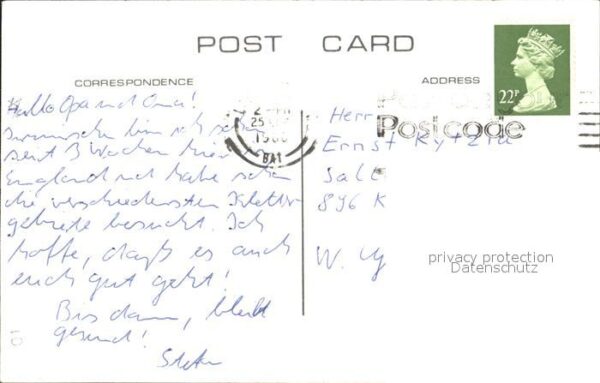 POST CARD
CORRESPONDENCE
ADDRESS
22P
25
BA1
Postcode
Hallo Opa und Oma!
bin ich schon
seit 3 Wochen hier in
England und habe schon
die verschiedensten Kletter
gebiete besucht. Ich
hoffe, daß es auch
euch gut geht!
Bis dann, bleibt
gesund!
Herr
Ernst
896 K
W.
privacy protection
Datenschutz